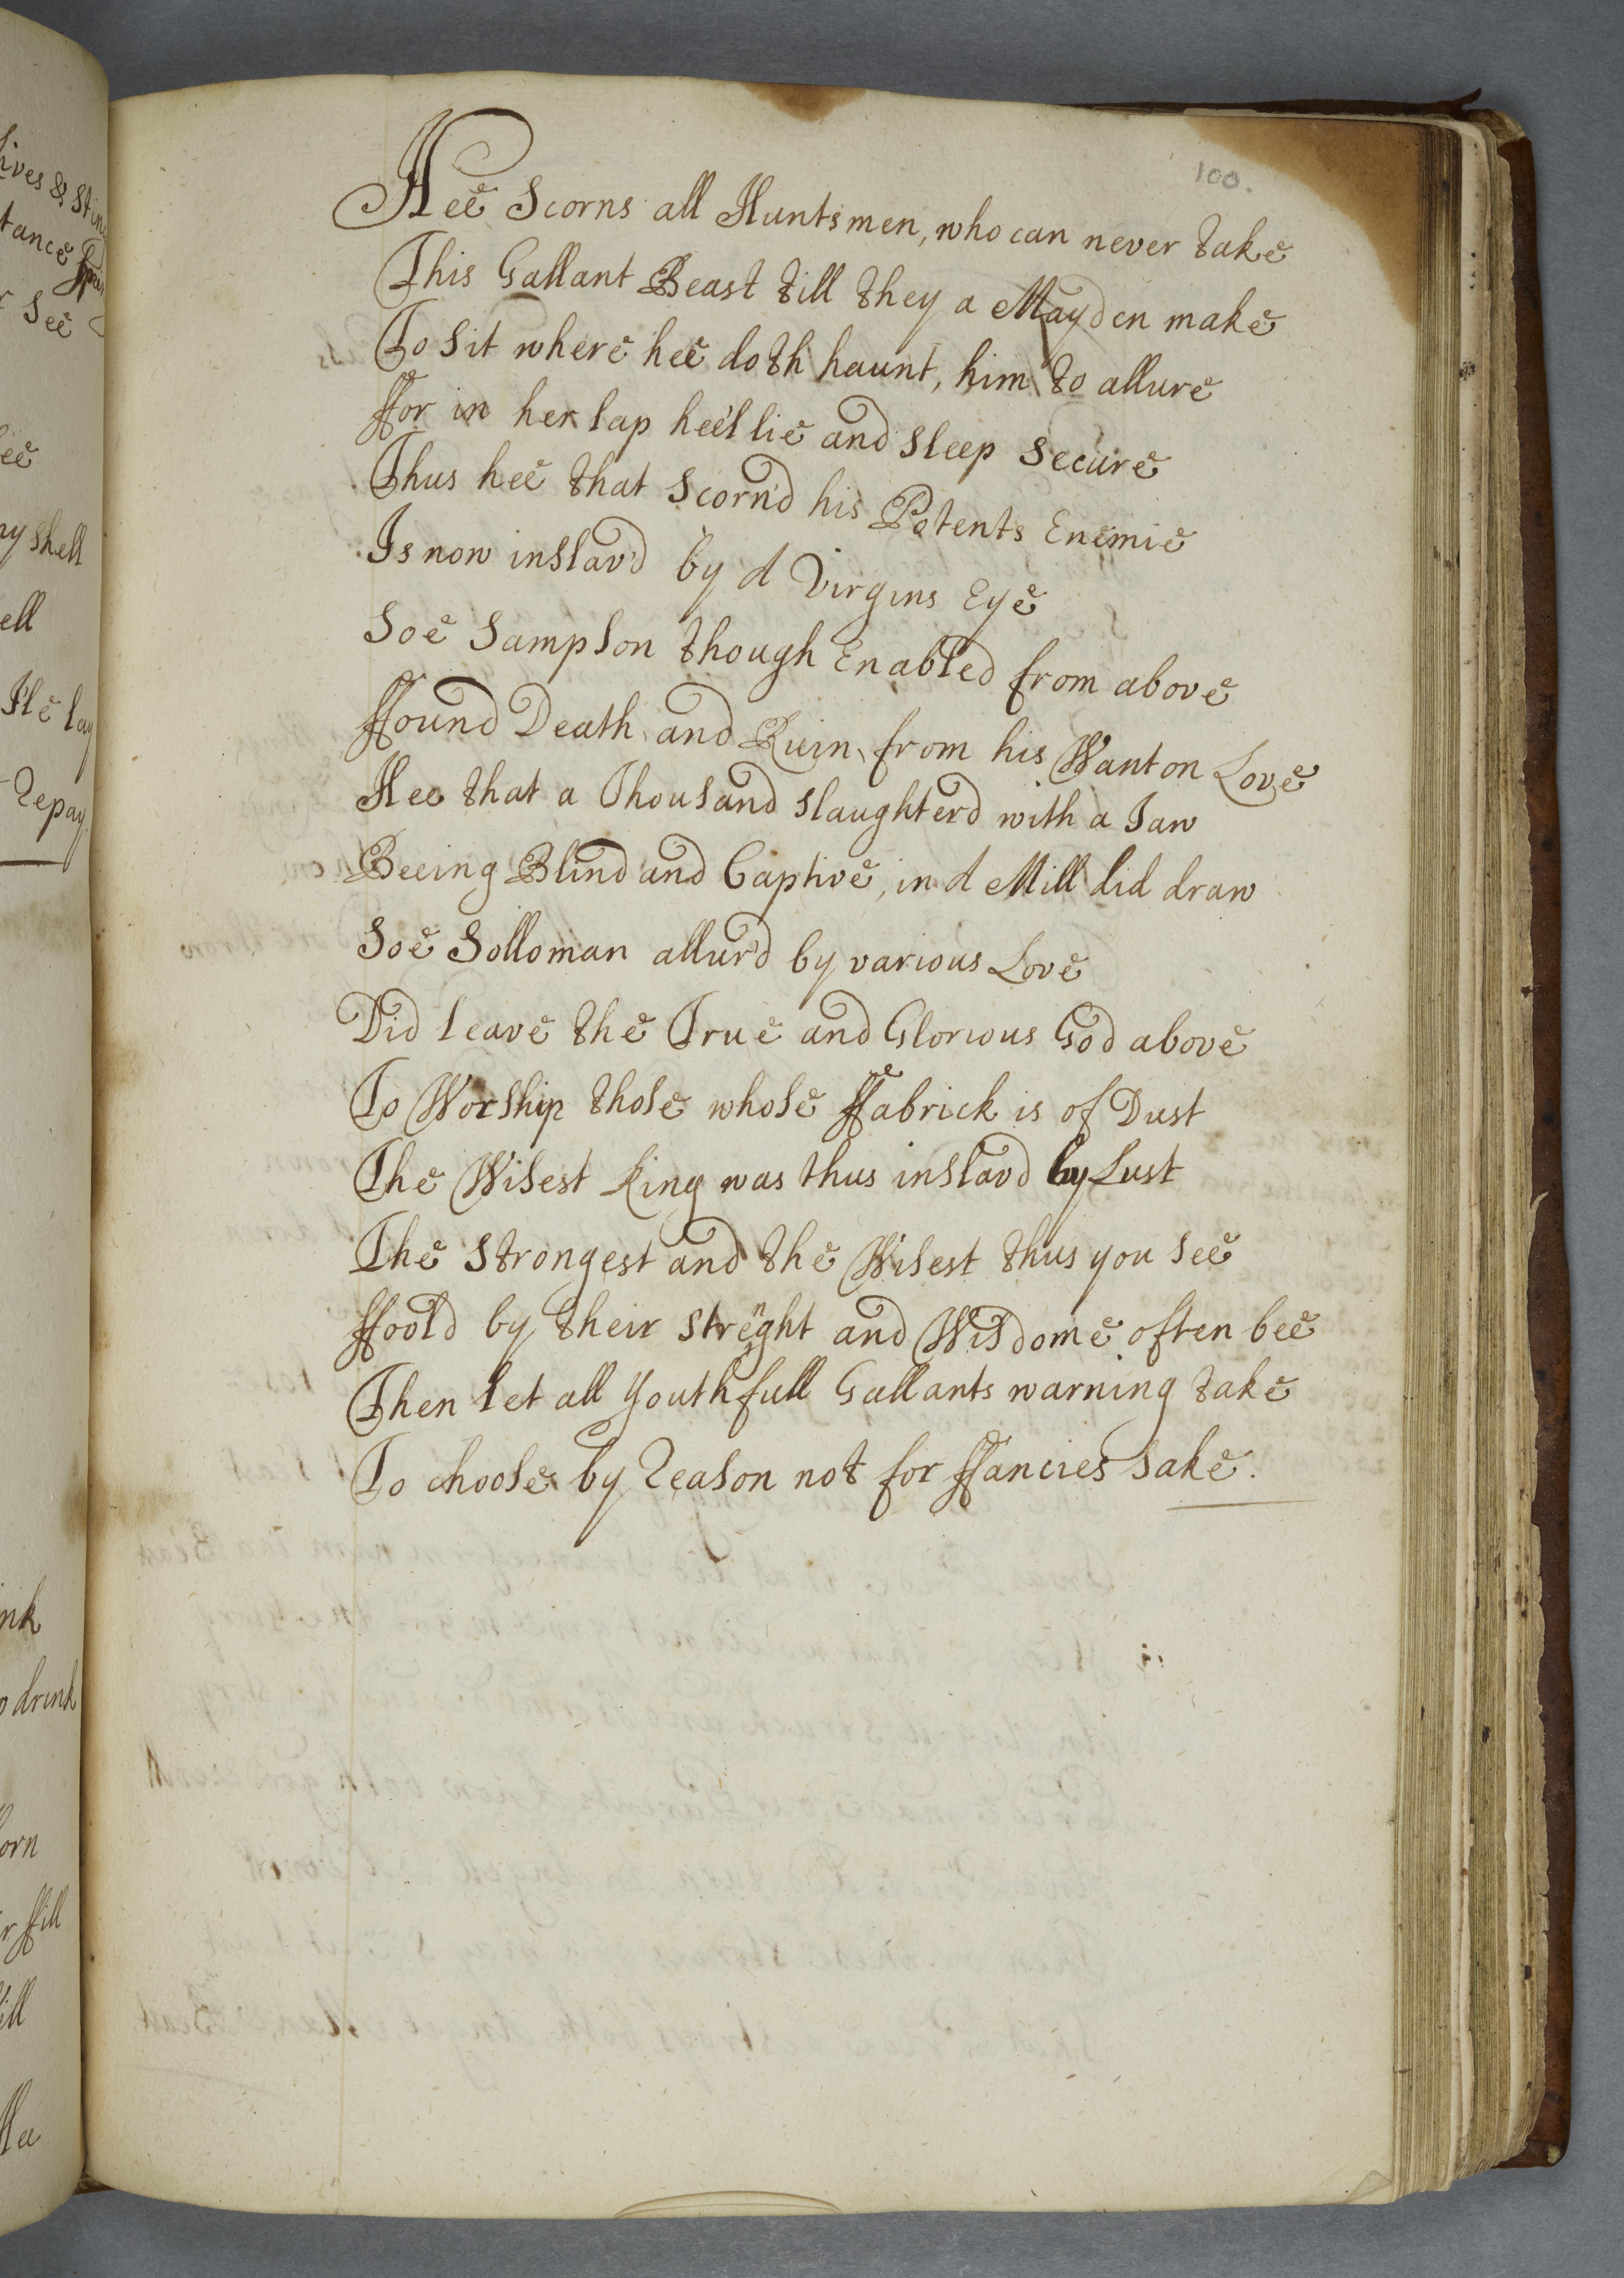 100.
Hee Scorns all Huntsmen, who can never take
This Gallant Beast till they a Mayden make
To sit where hee doth haunt, him to allure
ffor in her lap hee'l lie and sleep secure
Thus hee that scorn'd his Potents Enemie
Is now inslav'd by a Virgins Eye
Soe Sampson though Enabled from above
ffound Death and Ruin, from his Wanton Love
Hee that a Thousand slaughterd with a Jaw
Beeing Blind and Captive, in a Mill did draw
Soe Solloman allur'd by various Love
Did leave the True and Glorious God above
To Worship those whose ffabrick is of Dust
The Wisest King was thus inslavd by Lust
The Strongest and the Wisest thus you see
ffoold by their strenght and Wisdome often bee
Then let all Youthfull Gallants warning take
To choose by Reason not for ffancies sake.
ives & Stin
tance
r See
ee
ny shell
ell
I'le lay
Repay
ink
o drink
orn
r ffill
ill
Hee